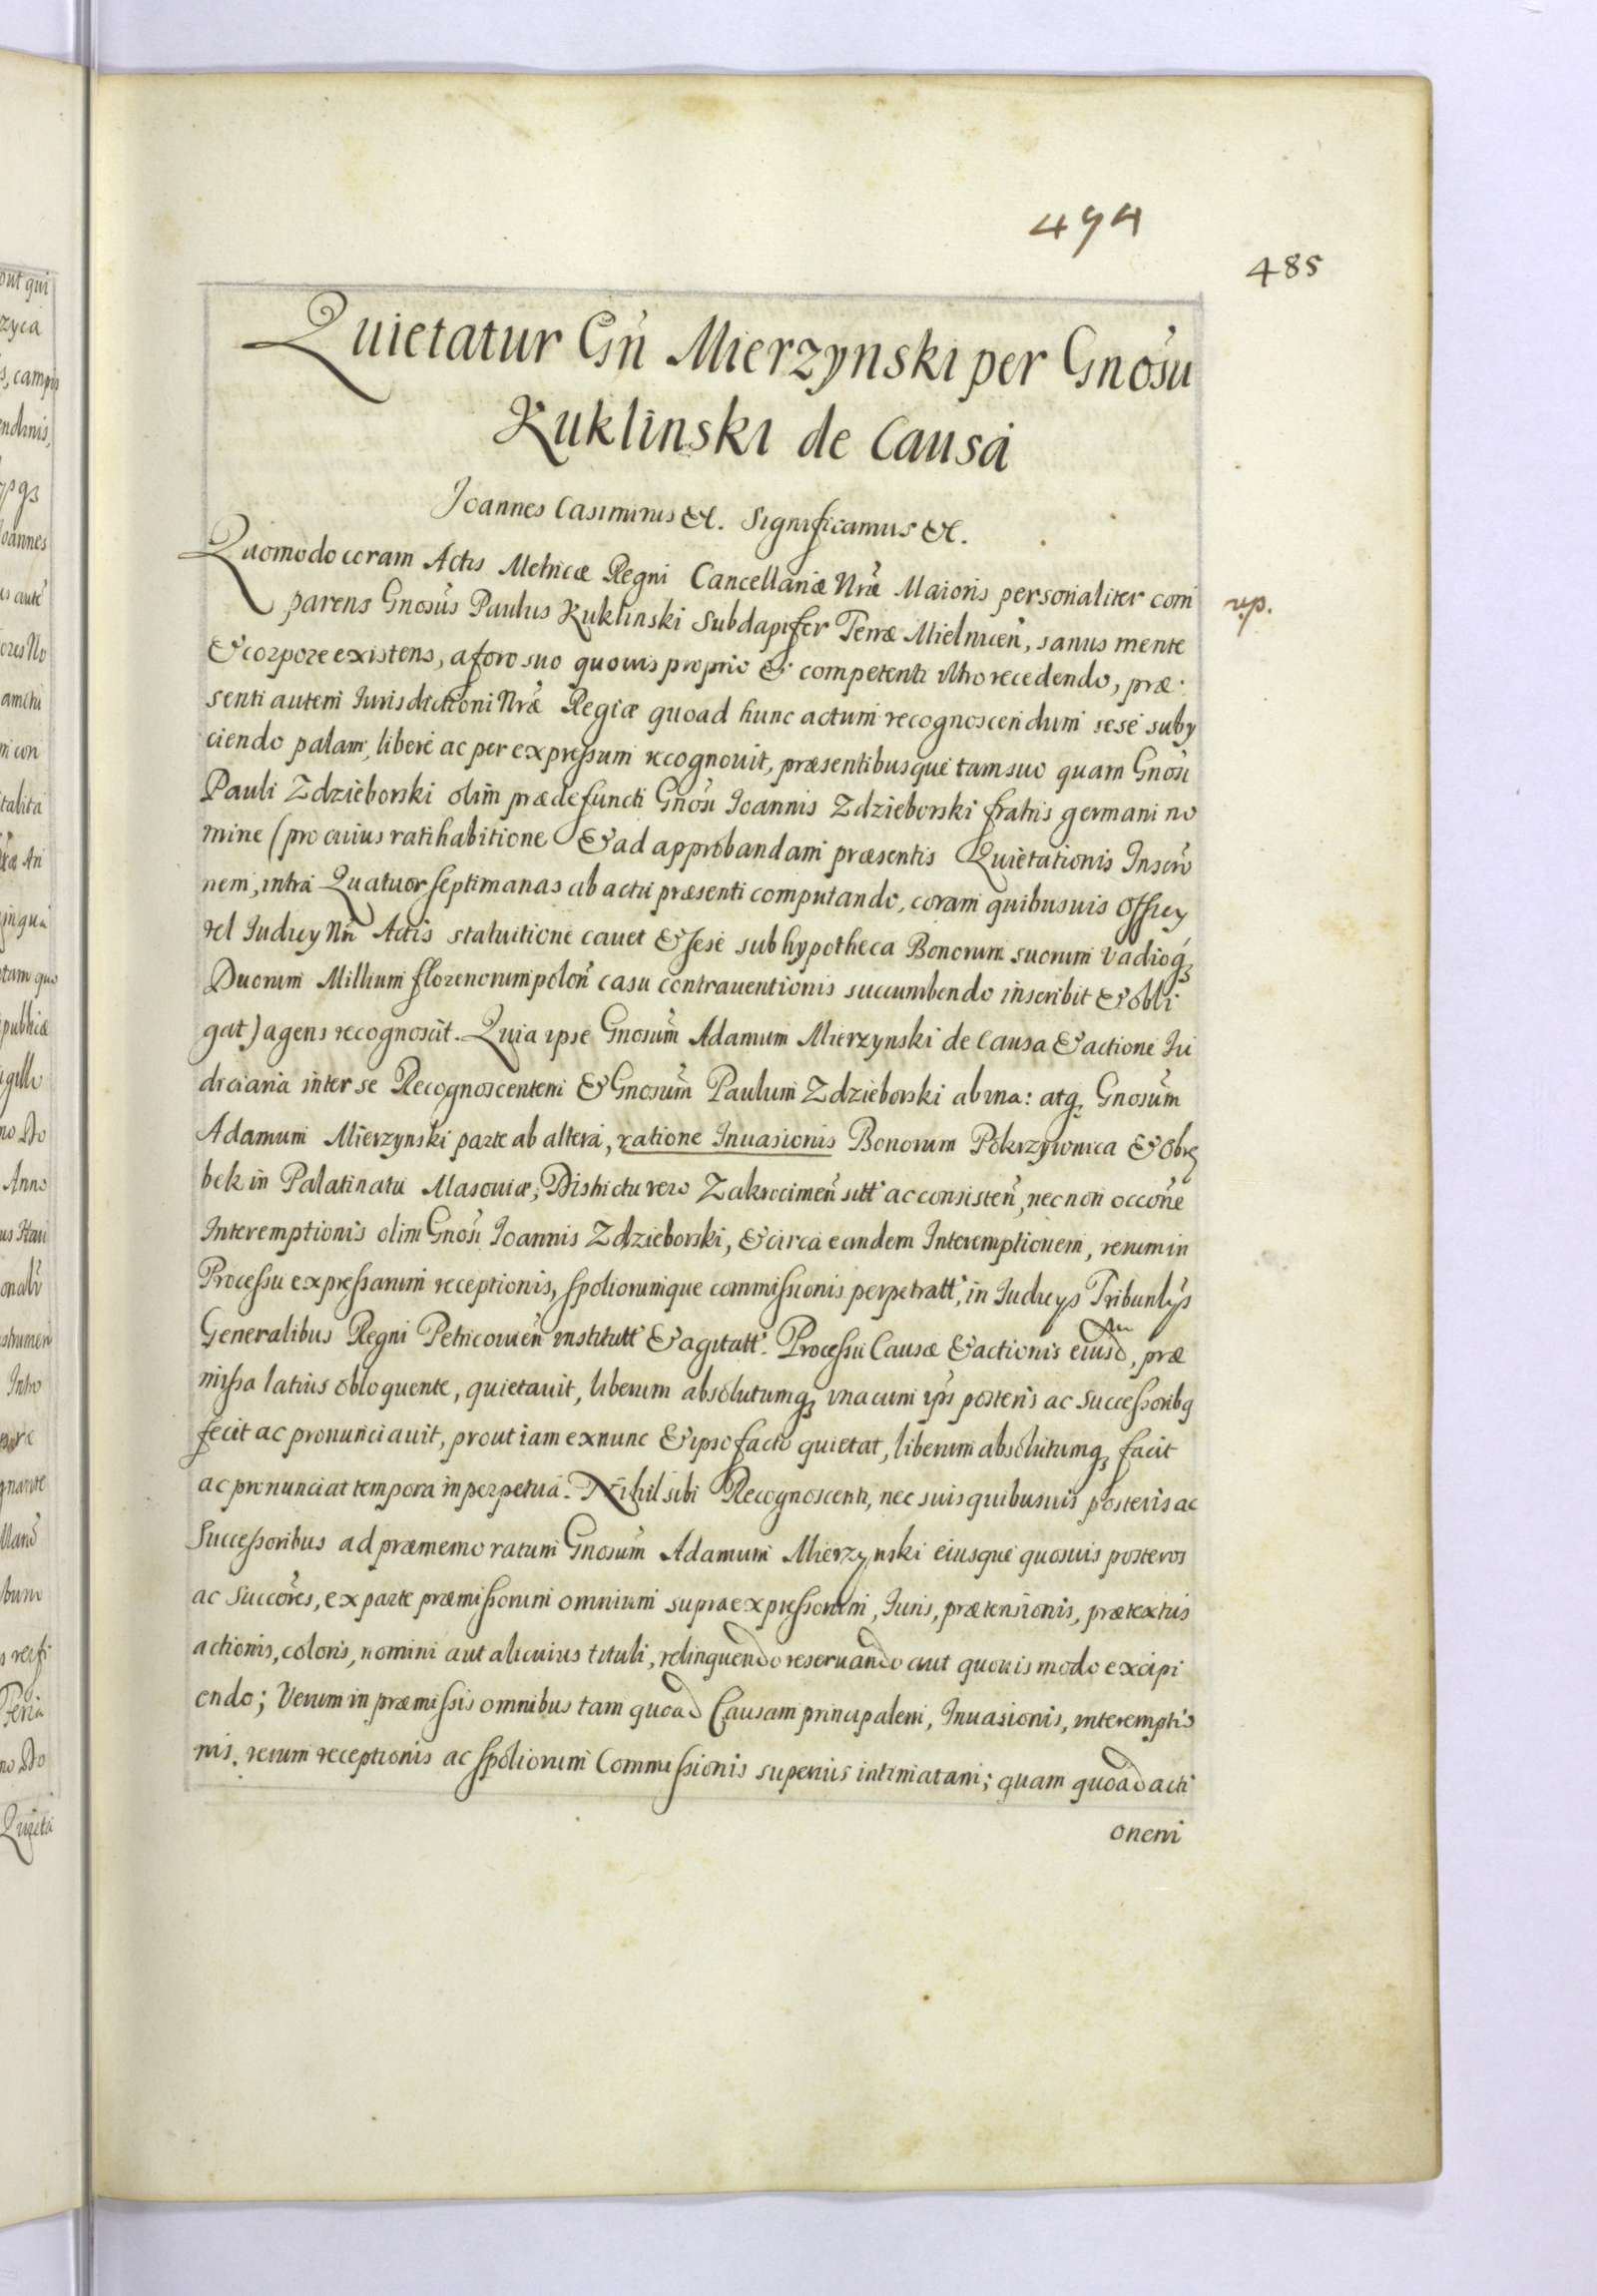 494
485
Quietatur Gn̄ Mierzynski per Gnosū
Kuklinski de Causa
Joannes Casimirus &c. Significamus &c.
Quomodo coram Actis Metricæ Regni Cancellariæ Nræ̃ Maioris personaliter com
parens Gnosūs Paulus Kuklinski Subdapifer Terræ Mielnicen̄, sanus mente
rp.
& corpore existens, a foro suo quovis proprio & competenti vltro recedendo, præ:
senti autem Iurisdictioni Nræ̃ Regiæ quoad hunc actum recognoscendum sese suby
ciendo palam, liberè ac per expressum recognouit, præsentibusque tam suo quam Gnosi
Pauli Zdzieborski olim prædefuncti Gnosi Ioannis Zdzieborski fratris germani no
mine (pro cuius ratihabitione & ad approbandam præsentis Quietationis Inscrō
nem, intra Quatuor septimanas ab actu præsenti computando, coram quibusuis Offcy
vel Iudicy Nrī Actis statuitione cauet & sese sub hypotheca Bonorum suorum Vadioq3
Duorum Millium florenorum polon̄ casu contrauentionis succumbendo inscribit & obli
gat) agens recognoscit. Quia ipse Gnosum̄ Adamum Mierzynski de Causa & actione Iu
diciaria inter se Recognoscentem & Gnosum̄ Paulum Zdzieborski ab vna: atq3 Gnosum̄
Adamum Mierzynski parte ab altera, ratione Inuasionis Bonorum Pokrzywnica & Obrę
bek in Palatinatu Masouiæ, Districtu vero Zakrocimen̄ sitt̄ ac consisten̄, nec non occōne
Interemptionis olim Gnosi Ioannis Zdzieborski, & circa eandem Interemptionem, rerum in
Processu expressarum receptionis, spoliorumque commissionis perpetratt̄, in Iudicys Tribunlys
Generalibus Regni Petricouien̄ institutt̄ & agitatt̄. Processu Causæ & actionis eiusd, præ
missa latius obloquente, quietauit, liberum absolutumq3 vna cum ipsī posteris ac Successoribq
fecit ac pronunciauit, prout iam exnunc & ipso facto quietat, liberum absolutumq3 facit
ac pronunciat tempora in perpetua. Nihil sibi Recognoscenti, nec suis quibusuis posteris ac
Successoribus ad præmemoratum Gnosum̄ Adamum Mierzynski eiusque quosuis posteros
ac Succōres, ex parte præmissorum omnium supra expressorum, Iuris, prætensionis, prætextus
actionis, coloris, nomini aut alicuius tituli, relinquendo reseruando aut quouis modo excipi
endo; Verum in præmissis omnibus tam quoad Causam principalem, Inuasionis, interemptio
nis, rerum receptionis ac spoliorum Commissionis superius intimatam; quam quoad acti
onem